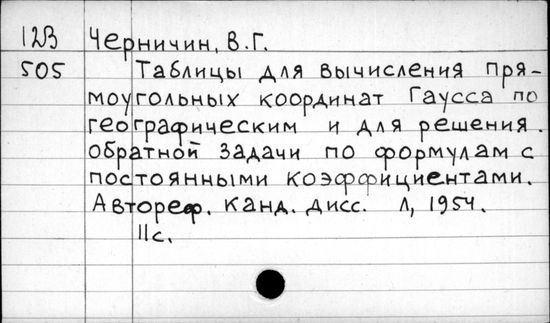 12В Черничин, В.Г.
505 Таблицы для вычисления пря-
моугольных координат Гаусса по
географическим и для решения
обратной задачи по формулам с
постоянными коэффициентами.
Автореф. канд. дисс. Л, 1954.
11с.